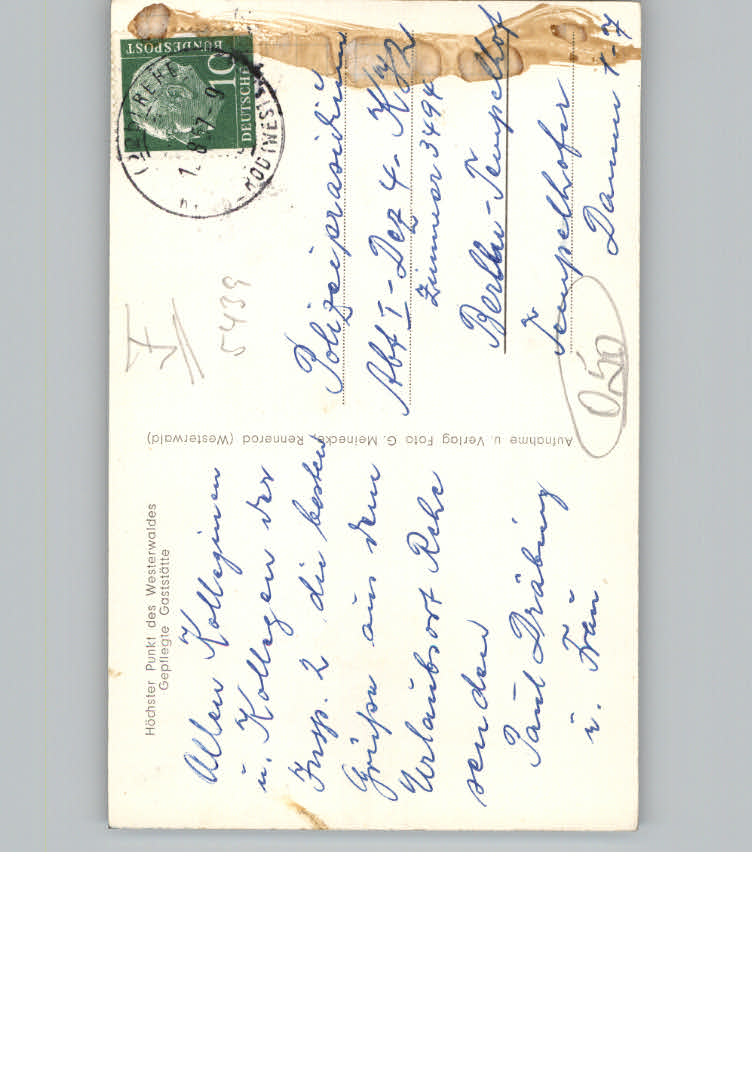 Höchster Punkt des Westerwaldes
Gepflegte Gaststätte
Allen Kolleginnen
u. Kollegen der
Insp. 2 die besten
Grüße aus dem
Urlaubsort Rehe
senden
Paul Dräbing
u. Frau
Aufnahme u. Verlag Foto G. Meinecke, Rennerod (Westerwald)
DEUTSCHE
BUNDESPOST
10
REHE
5439
Polizeipräsidium
Abt I - Dez 4 - KJ2
Zimmer 3494
Berlin-Tempelhof
Tempelhofer
Damm 1-7
050